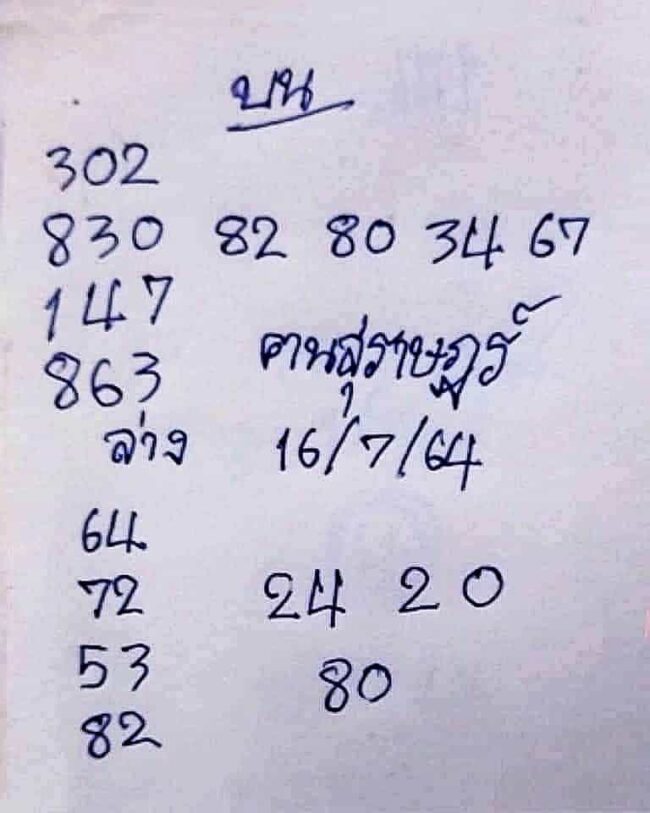 บน
302
830 82 80 34 67
147
863 คนสุราษฎร์
ล่าง 16/7/64
64
72 24 20
53 80
82